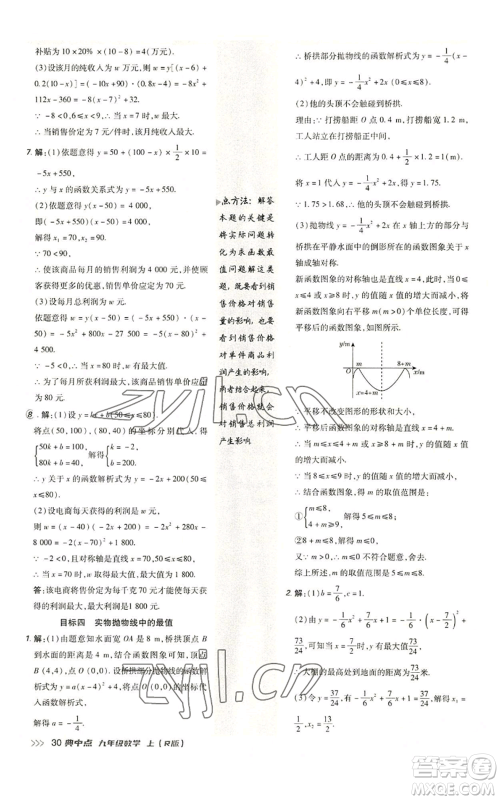 补贴为10×20%×(10-8)=4(万元).
(3)设该月的纯收入为w万元,则w=y[(x-6)+
0.2(10-x)]=(-10x+140)·(0.8x-4)=-8x²+
112x-360=-8(x-7)²+32.
∵-8<0,∴当x=7时,w最大.
∴当销售价定为7元时,该月纯收入最大.
7. 解:(1)依题意得y=50+(100-x)×1/2×10=
-5x+550,
∴y与x的函数关系式为y=-5x+550.
(2)依题意得y(x-50)=4 000,
即(-5x+550)(x-50)=4 000,
解得x₁=70,x₂=90.
∵70<90,
∴使该商品每月的销售利润为4 000元,并使顾客获得更多实惠,销售价格应定为70元.
(3)设每月总利润为w元,
依题意得w=y(x-50)=(-5x+550)(x-50)=
-5x²+800x-27 500=-5(x-80)²+4 500.
∵-5<0,
∴当x=80时,w有最大值,最大值为4 500.
∴为了每月所获利润最大,该商品销售价格应定为80元.
8. 解:(1)设y=kx+b(50≤x≤80).
将点(50,100),(80,40)的坐标分别代入,得
{50k+b=100, 80k+b=40, 解得{k=-2, b=200.
∴y关于x的函数解析式为y=-2x+200(50≤x≤80).
(2)设电商每天获得的利润为w元,
则w=(x-40)(-2x+200)=-2x²+280x-
8 000=-2(x-70)²+1 800,
∵-2<0,且对称轴是直线x=70,
又∵50≤x≤80,
∴当x=70时,w取得最大值,为1 800.
答:该电商售价定为每千克70元时,每天能获得最大利润,最大利润是1 800元.
目标四 实物抛物线中的最值
1. 解:(1)如题图②,由题意得水面宽OA是8 m,桥拱顶点B到水面的距离是4 m,结合函数图象可知,顶点B(4,4),点O(0,0).设桥拱部分抛物线的函数解析式为y=a(x-4)²+4,将点O(0,0)的坐标代入函数解析式,得0=16a+4,
解得a=-1/4.
点方法:解答
本题的关键是
将实际问题转
化为求函数最
值问题.还要
看到销售价格
对销售量的影
响,也要看到
销售价格对单
件商品利润产
生的影响,两
者结合起来,
就是销售价格
对销售总利润
产生影响.
∴桥拱部分抛物线的函数解析式为y=-1/4(x-
4)²+4,即y=-1/4x²+2x(0≤x≤8).
(2)他的头顶不会触碰到桥拱.
理由:打捞船距O点0.4 m,打捞船宽1.2 m,
工人站立在打捞船正中间,
∴工人距O点0.4+1/2×1.2=1(m).
将x=1代入y=-1/4x²+2x,得y=7/4=1.75.
∵1.75>1.68,
∴他的头顶不会触碰到桥拱.
(3)抛物线y=-1/4x²+2x在x轴上方的部分与
桥拱在平静水面中的倒影所在的函数图象关于x轴成轴对称.
新函数图象的对称轴也是直线x=4,且当0≤
x≤4或x≥8时,y的值随x值的增大而减小.
将新函数图象向右平移m(m>0)个单位长度,
可得平移后的函数图象,如图.
y/m m 8+m O x/m
∵平移不改变图形形状和大小,
∴平移后函数图象的对称轴是直线x=4+m,
∴当m≤x≤4+m或x≥8+m时,y的值随x值
的增大而减小,
∴当8≤x≤9时,y的值随x值的增大而减小,
∴结合函数图象,得m的取值范围是
①{m≤8, 4+m≥9,得5≤m≤8.
②8+m≤8,得m≤0.
又∵m>0,∴m≤0不符合题意,舍去.
综上所述,m的取值范围是5≤m≤8.
2. 解:(1)b=7/6,c=1.
(2)由y=-1/6x²+7/6x+1=-1/6(x-7/2)²+
73/24,
可知当x=7/2时,y有最大值73/24,
∴大棚的最大高度为73/24米.
30 典中点 九年级数学 上(R版)
zyjl.cn